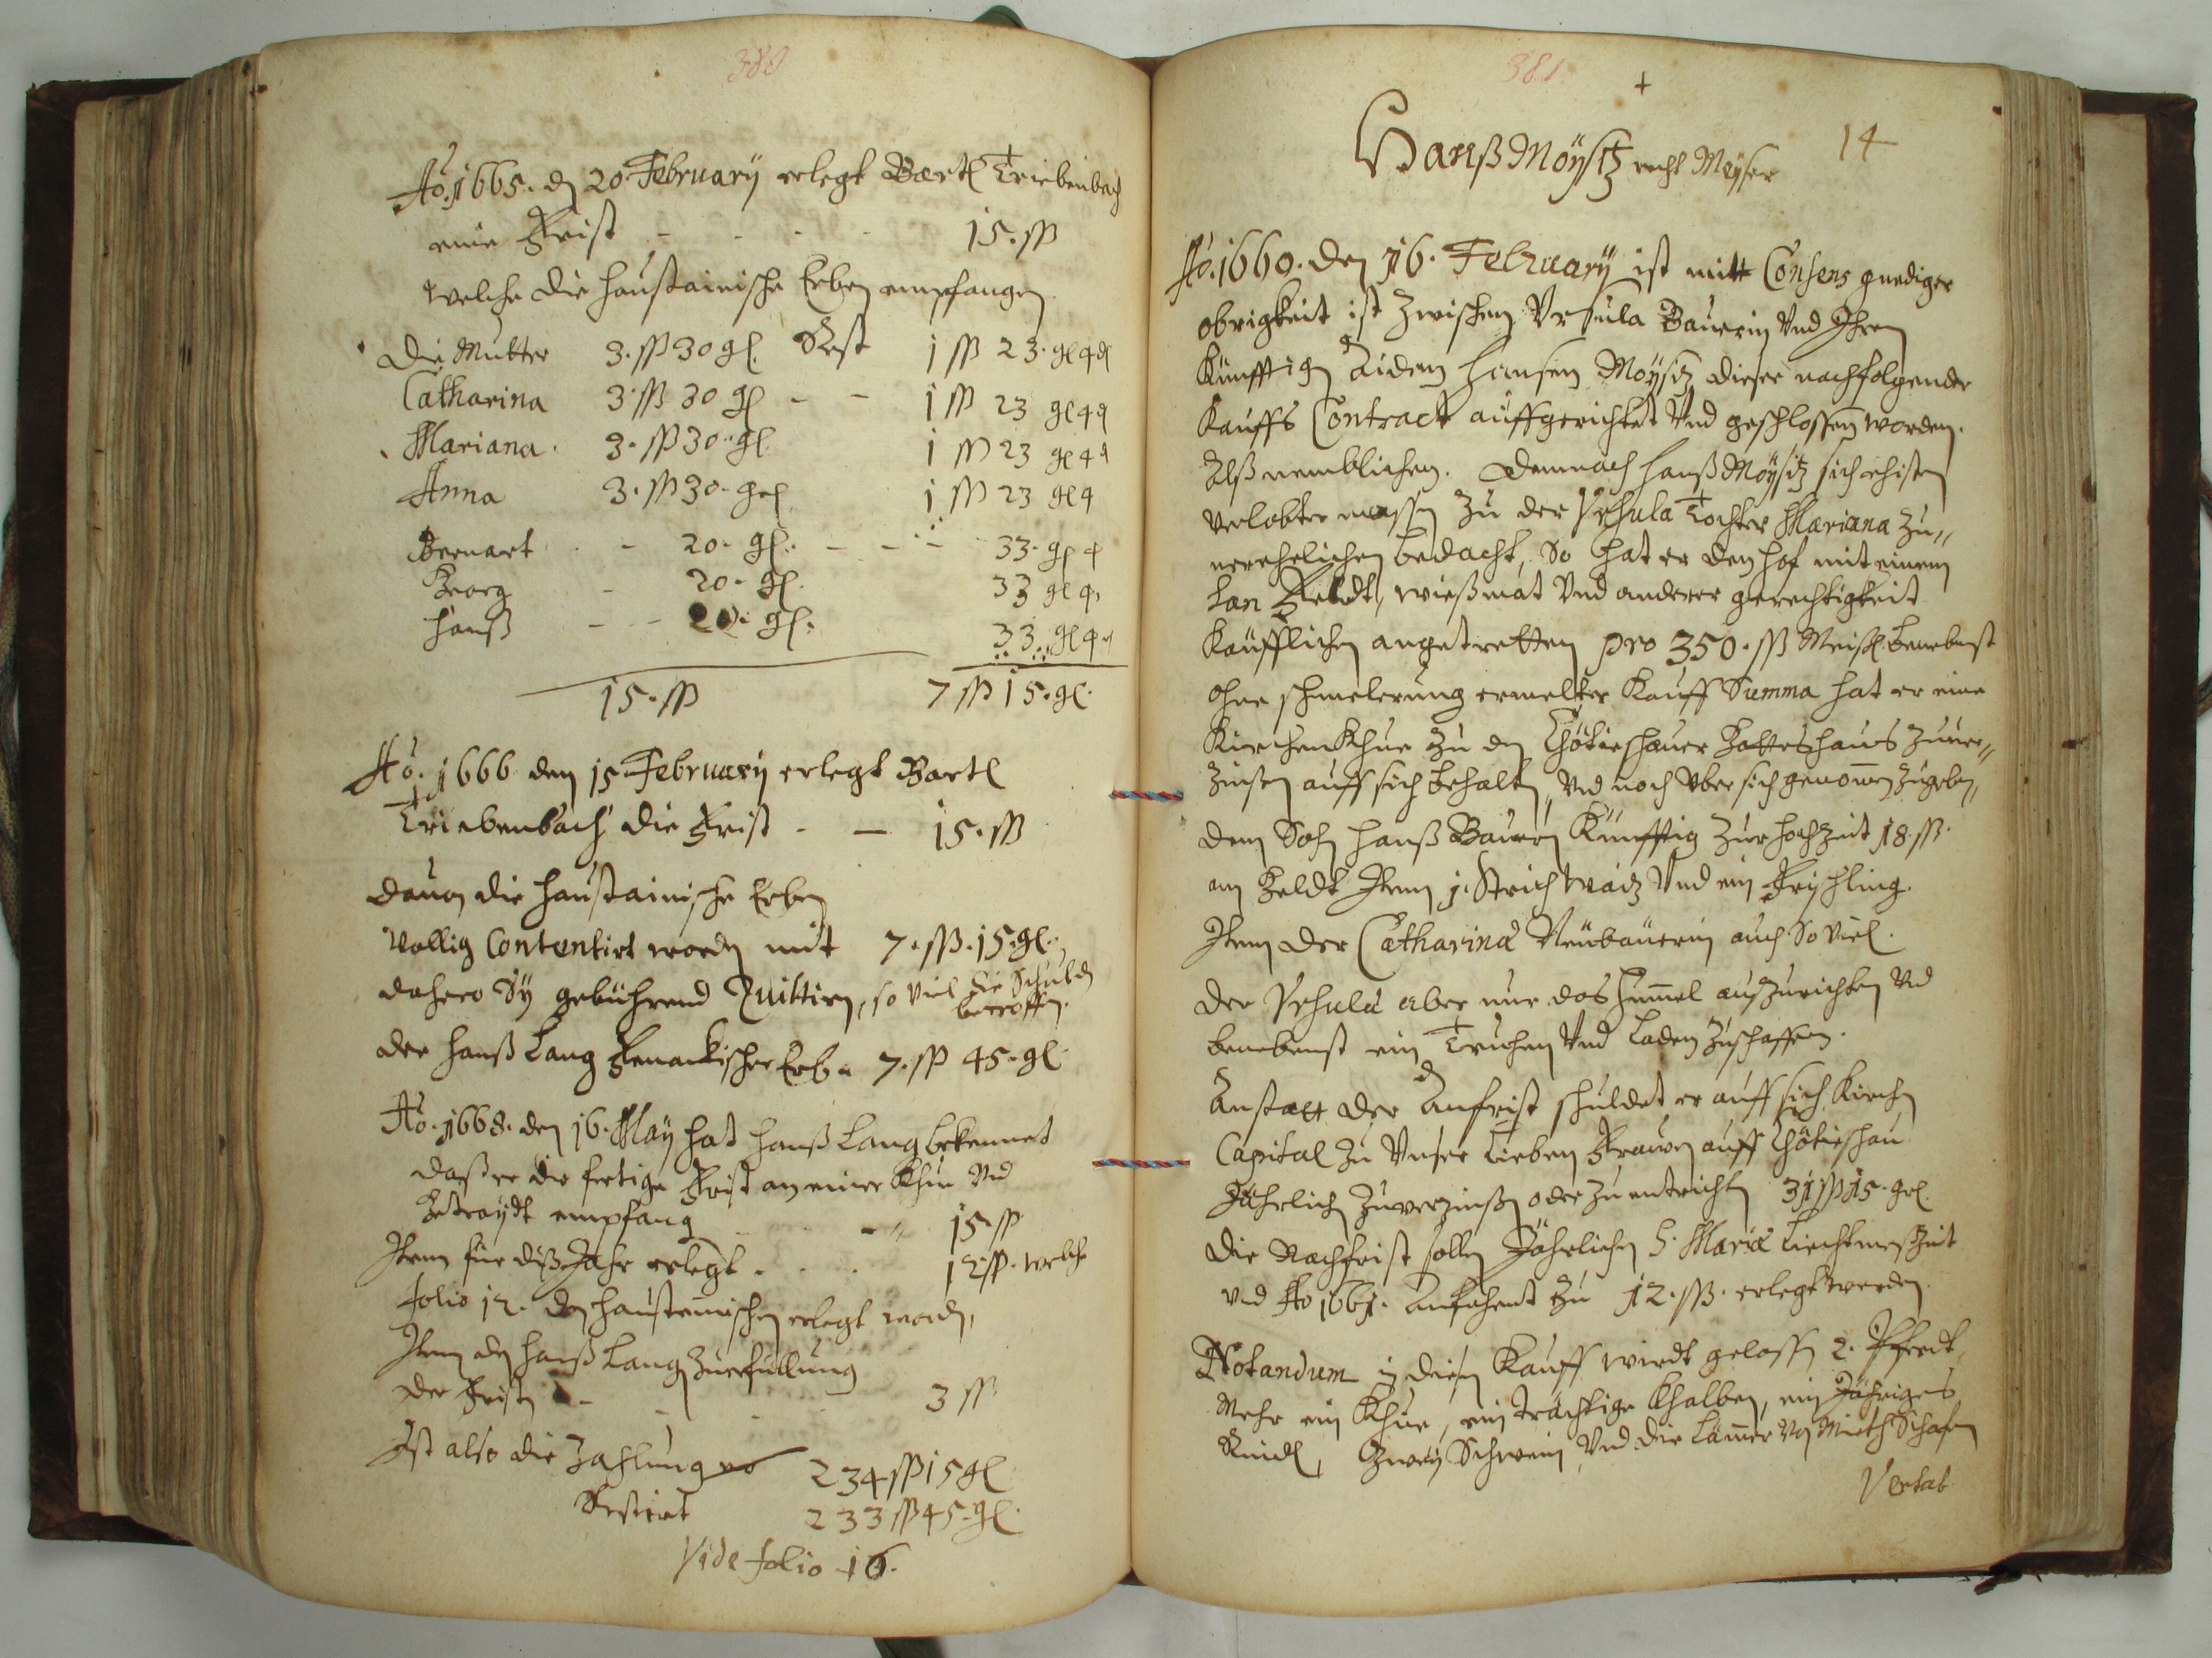 380
Aō. 1665. dē 20 February erlegt Bartl Triebenbach
eine Frist - - - - 15. ßß
welche die Haustainische Erben empfangen
Die Mutter 3. ßß 30 gl. Rest 1 ßß 23. gl 4 d
Catharina 3. ßß 30 gl - - 1 ßß 23 gl 4 d
Mariana. 3. ßß 30. gl. 1 ßß 23 gl 4 d
Anna 3. ßß 30. gl. 1 ßß 23 gl 4
Bernart - 20. gl. - - - 33. gl 4
Georg - 20. gl. 33 gl 4
Hanß - - 20. gl. 33. gl 4 d
15. ßß 7 ßß 15. gl.
Aō. 1666 den 15 February erlegt Bartl
Triebenbach die Frist - - 15. ßß
dauon die Haustainische Erben
Vollig Contentirt worden mit 7. ßß. 15. gl.,
dahero Sy gebührend Quittirn, so viel die Schuldt
betroffen.
der Hanß Lang Erb. 7. ßß 45. gl.
Aō. 1668. den 16. May hat Hanß Lang bekennet
daß er die fertige Frist an einer Khue Vnd
Getraydt empfang - - 15. ßß
Item für diß Jahr erlegt . . . 12. ßß. welche
folio 12. den Haustenischen erlegt worden,
Item den Hanß Lang Zuerfüllung
der Fristen - - - 3 ßß
Ist also die Zahlung 234 ßß 15 gl
Restirt 233 ßß 45. gl.
Vide folio 16.
381.
14
Hanß Möysitz recht Meyser
Aō. 1660. den 16. February ist mitt Consens gnediger
obrigkeit ist Zwischen Vrsula Bauerin Vnd Ihren
Künfftign Aidem Hansen Möysitz dieser nachfolgender
Kauffs Contract auffgerichtet Vnd geschlossen worden.
Alß nemblichen. Demnach Hanß Möysitz sich ehisten
verlobter massen Zu der Vrsula Tochter Mariana Zu„
verehelichen bedacht, So hat er den Hof mit einem
Lan Feldt, wießmat Vnd anderer gerechtigkeit
Käufflichen angetretten pro 350. ßß Meißl. benebenst
ohne schmelerung ermelter Kauff Summa hat er eine
Kirchen Khue Zu dem Chötieschauer Gotteshaus Zuuer„
Zinsen auff sich behalten, Vnd noch vber sich genomen Zugeben,
dem Sohn Hanß Bauern Künfftig Zur Hochzeit 18. ßß.
an Geldt Item 1. Strich Waitz Vnd ein Frischling.
Item der Catharina Neubauerin auch So viel.
Der Vrsula aber nur das Himmel auszurichten Vnd
benebenst ein Truhen Vnd Laden Zuschaffen.
Anstatt der Anfrist schuldet er auff sich Kirchen
Capital Zu Vnser Lieben Frawen auff Chötieschau
Jährlich Zuverzinßen oder Zu entrichten 31 ßß 15. gl.
Die Nachfrist sollen Jährlichen S. Mariæ Liechtmeß Zeit
vnd Ao 1661. Anfahent Zu 12. ßß. erlegt werden.
Notandum in diesen Kauff wirdt gelassen 2. Pferdt,
Mehr ein Khue, ein trächtige Khalben, ein Jähriges
Rindl, Zwey Schwein, Vnd die Lämmer von Mieth Schafen
Vertat